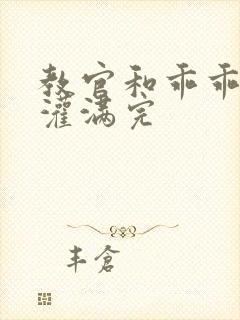 教官和乖乖
灌满完
丰仓